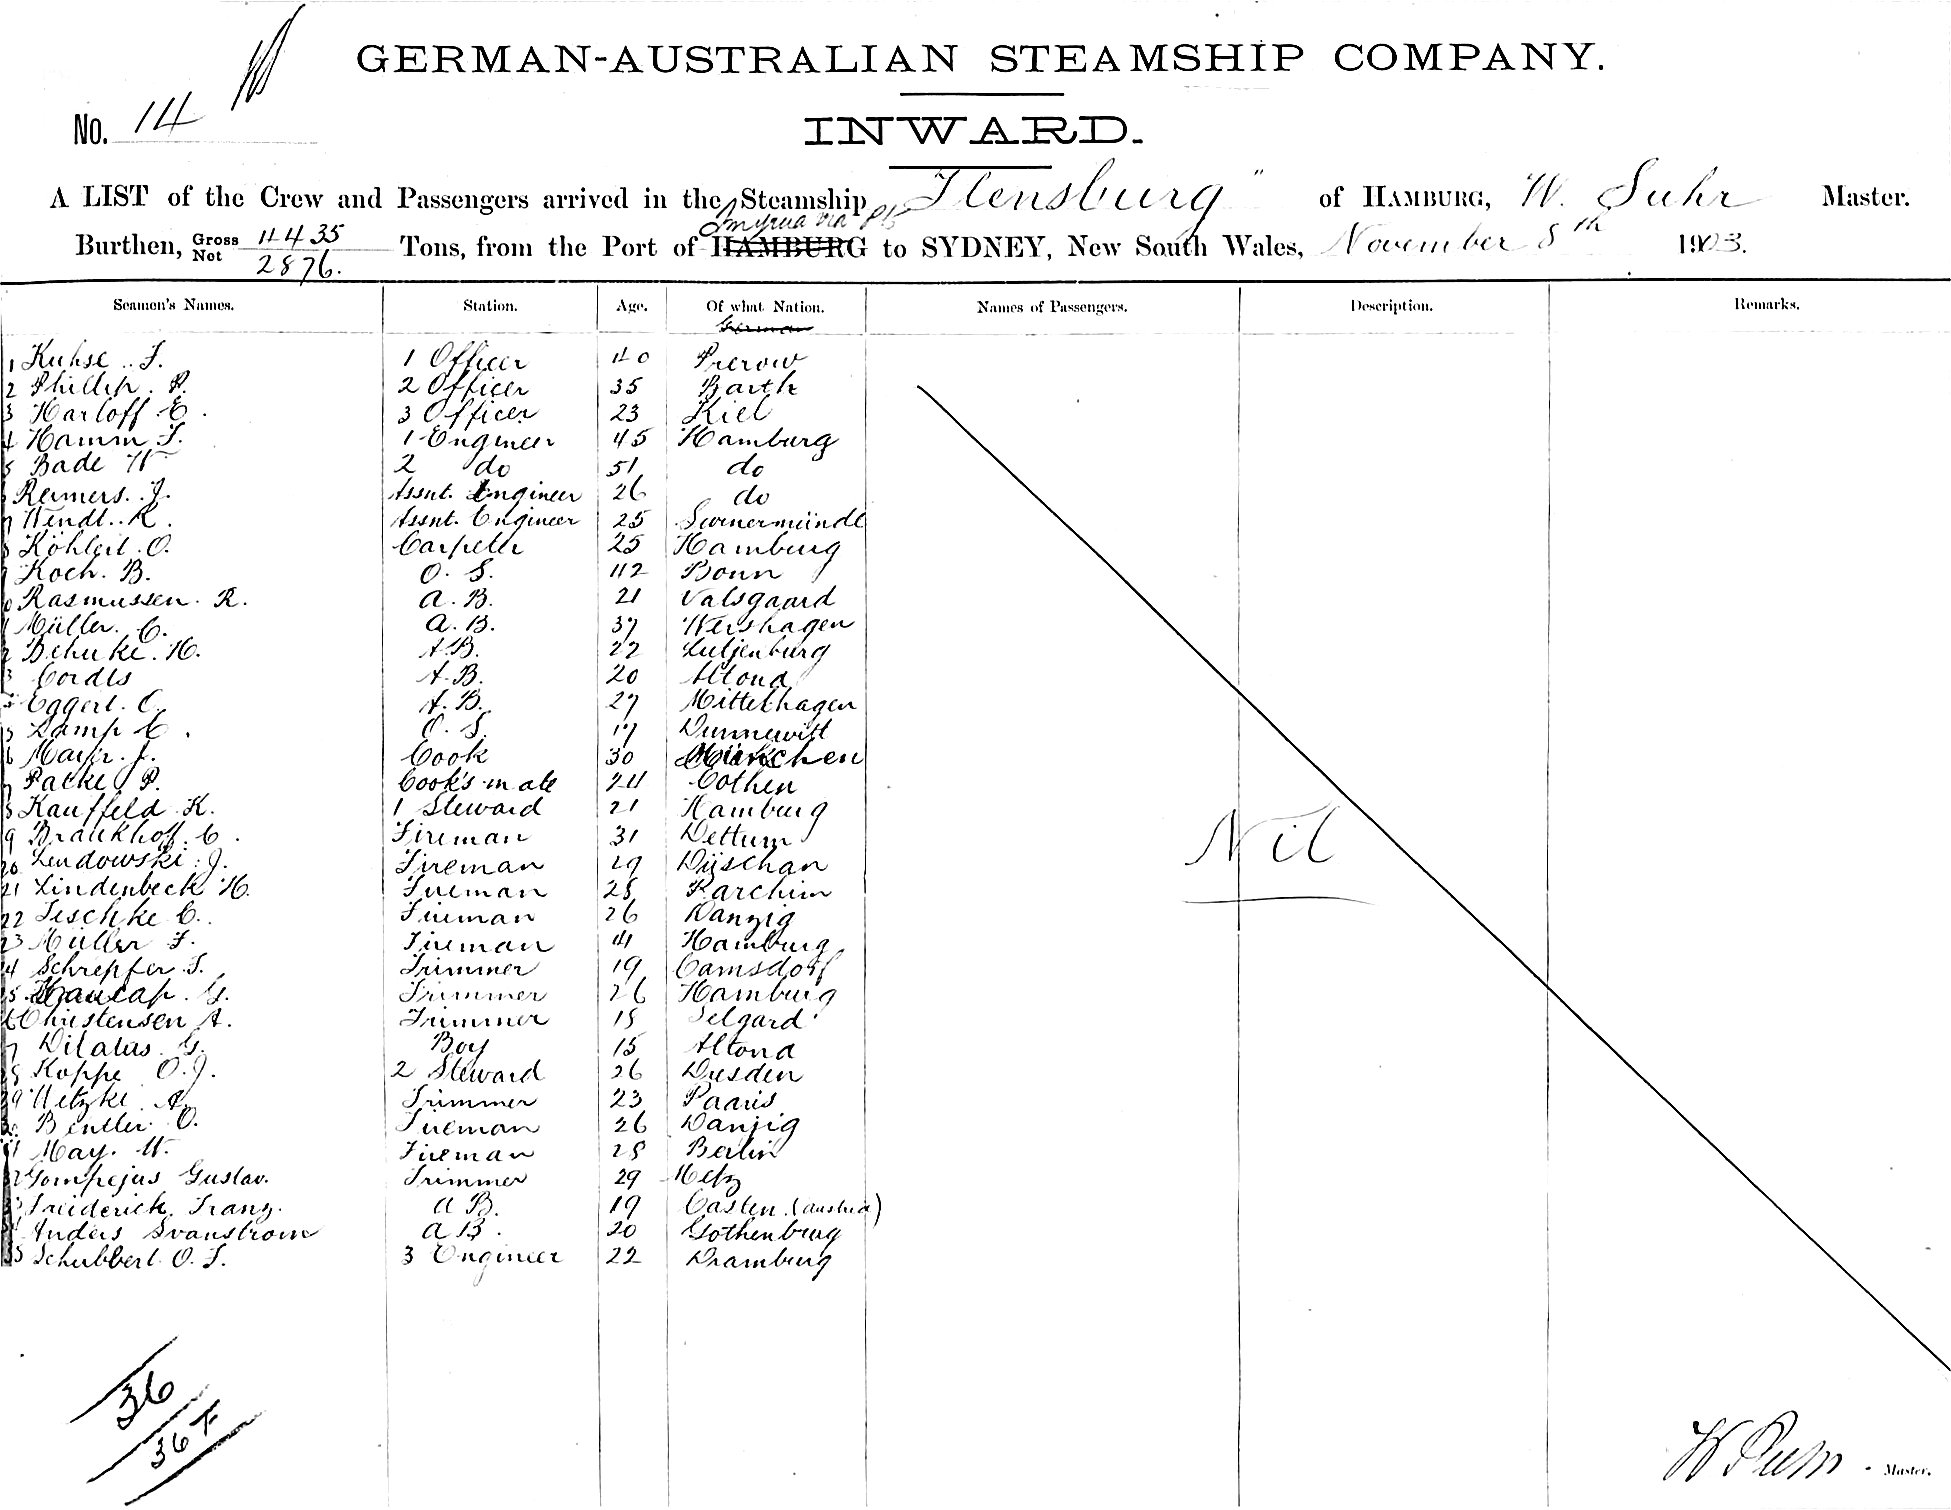 GERMAN-AUSTRALIAN STEAMSHIP COMPANY.
No. 14
INWARD.
A LIST of the Crew and Passengers arrived in the Steamship "Flensburg" of HAMBURG, W. Suhr Master.
Smyrna via
Burthen, Gross 4435 Tons, from the Port of HAMBURG to SYDNEY, New South Wales, November 8th 1903.
Net 2876.
Seamen's Names. Station. Age. Of what Nation. Names of Passengers. Description. Remarks.
German
1 Kuhse .. F. 1 Officer 40 Prerow
2 Phillip . P. 2 Officer 35 Barth
3 Harloff E. 3 Officer 23 Kiel
4 Hamm F. 1 Engineer 45 Hamburg
5 Bade W 2 do 51 do
Reimers. J. Assnt. Engineer 26 do
7 Wendt .. K. Assnt. Engineer 25 Swinemünde
8 Köhlert . O. Carpeter 25 Hamburg
9 Koch. B. O. S. 42 Bonn
10 Rasmussen. R. A. B. 21 Valsgaard
Müller. C. A. B. 37 Wershagen
Behnke. H. A. B. 22 Lutjenburg
3 Cordts A. B. 20 Altona
Eggert. C. A. B. 27 Mittelhagen
5 Lamp C. O. S. 17
6 Mayr. J. Cook 30 München
7 Packe P. Cook's mate 24 Cothen
8 Kauffeld . K. 1 Steward 21 Hamburg
9 Brackhoff. C. Fireman 31 Dettum
20 Lendowski . J. Fireman 29 Dirschau
21 Lindenbeck H. Fireman 28 Parchim
22 Jeschke C. Fireman 26 Danzig
23 Müller F. Fireman 41 Hamburg
4 Schrepfer F. Trimmer 19 Camsdorf
5 G. Trimmer 26 Hamburg
6 Christensen A. Trimmer 18
7 G. Boy 15 Altona
8 Koppe O. J. 2 Steward 26 Dresden
29 Wetzke A. Trimmer 23 Paaris
Bentler O. Fireman 26 Danzig
May. W. Fireman 28 Berlin
Gompejus Gustav. Trimmer 29 Metz
Freiderick, Franz. A B. 19 Casten. (Austria)
Anders Svanstrom A B. 20 Gothenburg
35 Schubbert O. F. 3 Engineer 22 Dramburg
Nil
36
36
Master.